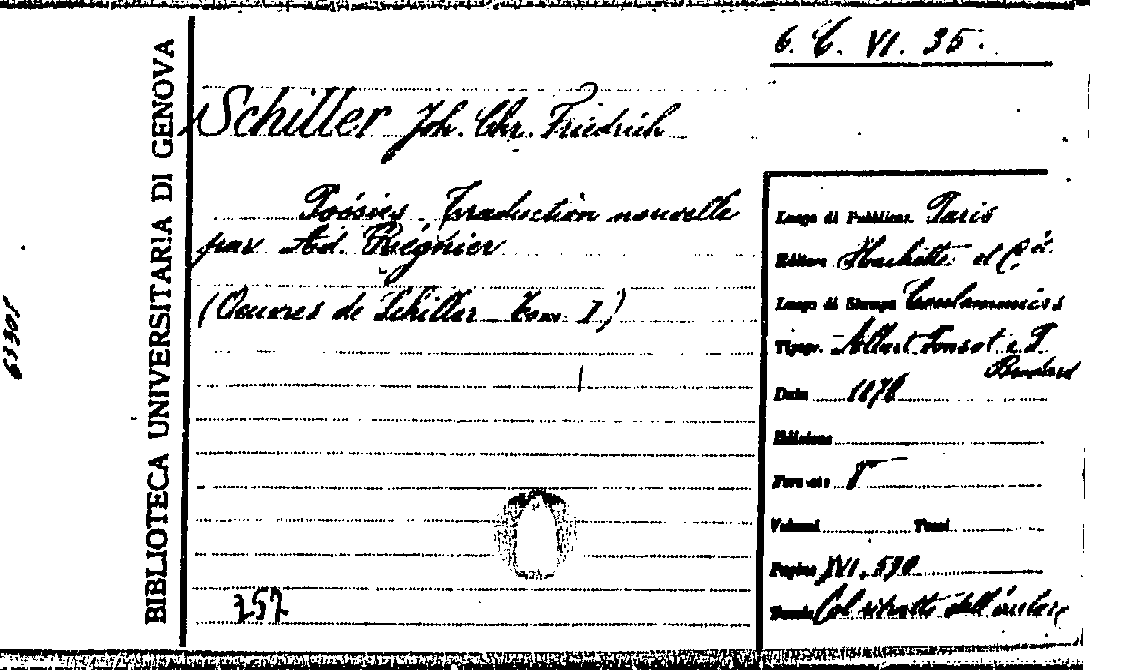 6. C. VI. 35.
BIBLIOTECA UNIVERSITARIA DI GENOVA
63301
Schiller Joh. Chr. Friedrich
Poésies. Traduction nouvelle
par Ad. Régnier
(Oeuvres de Schiller Tom. I)
357
Luogo di Pubblicaz. Paris
Editore Hachette et C.ie
Luogo di Stampa Coulommiers
Tipogr.
Data 1870
Edizione
Formato 8°
Volumi Tomi
Pagine XVI, 590
Col ritratto dell'autore